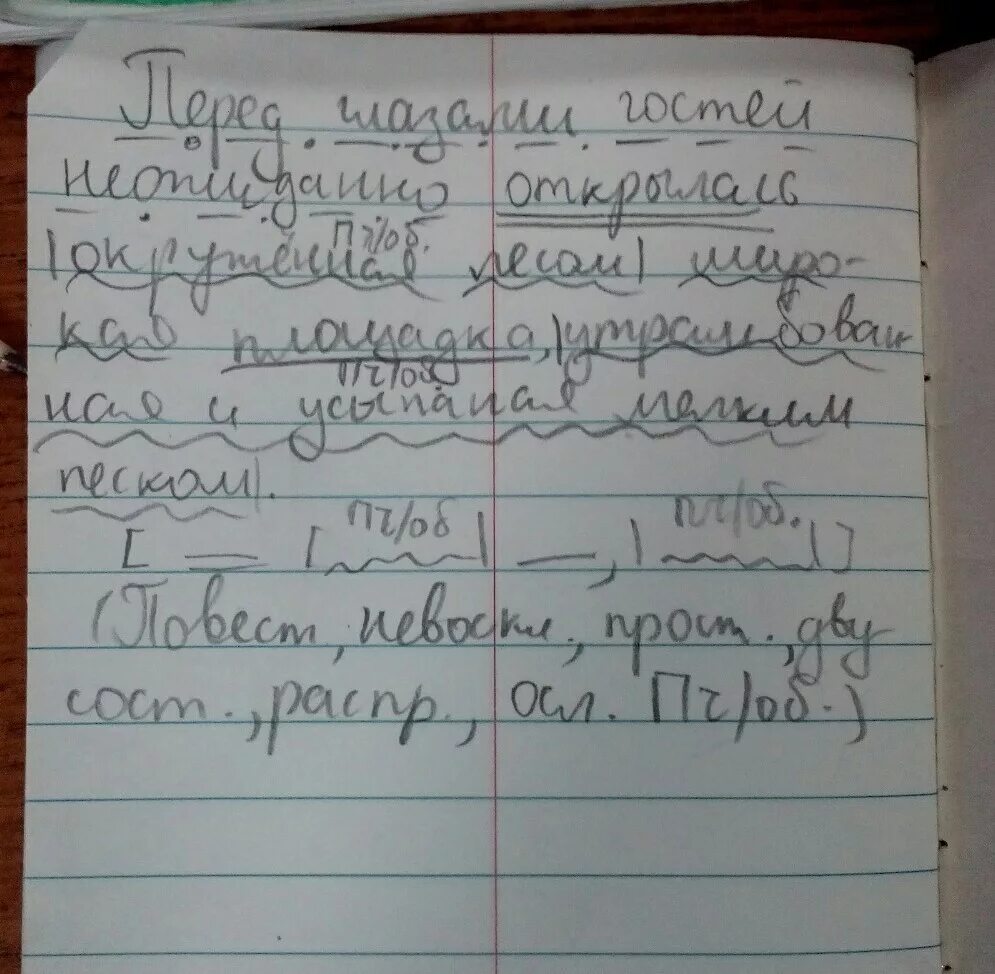 Перед глазами гостей
неожиданно открылась
Пч/об.
|окружённая лесом| широ-
кая площадка,|утрамбован
Пч/об
ная и усыпаная мелким
песком|.
Пч/об Пч/об.
[ = |~~~| —, |~~~| ]
(Повест, невоскл., прост., дву
сост., распр., осл. Пч/об.)